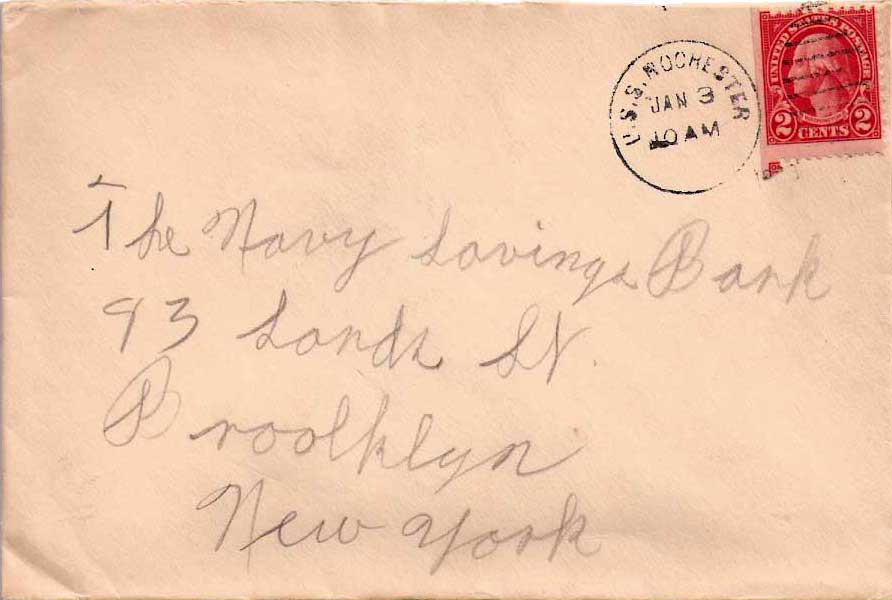 U.S.S. ROCHESTER
JAN 3
10 AM
UNITED STATES POSTAGE
2 CENTS 2
The Navy Savings Bank
93 Sands St.
Broolklyn
New York